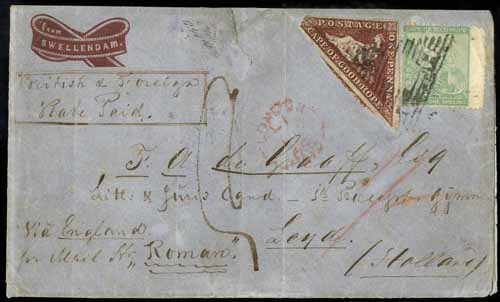 from
SWELLENDAM.
British & Foreign
State Paid.
POSTAGE
ONE PENNY
CAPE OF GOOD HOPE
LONDON
F. A. de Graaff, Esq
Litt: & Juris Cand
Leyd.
(Holland)
Via England.
per Mail Str "Roman"